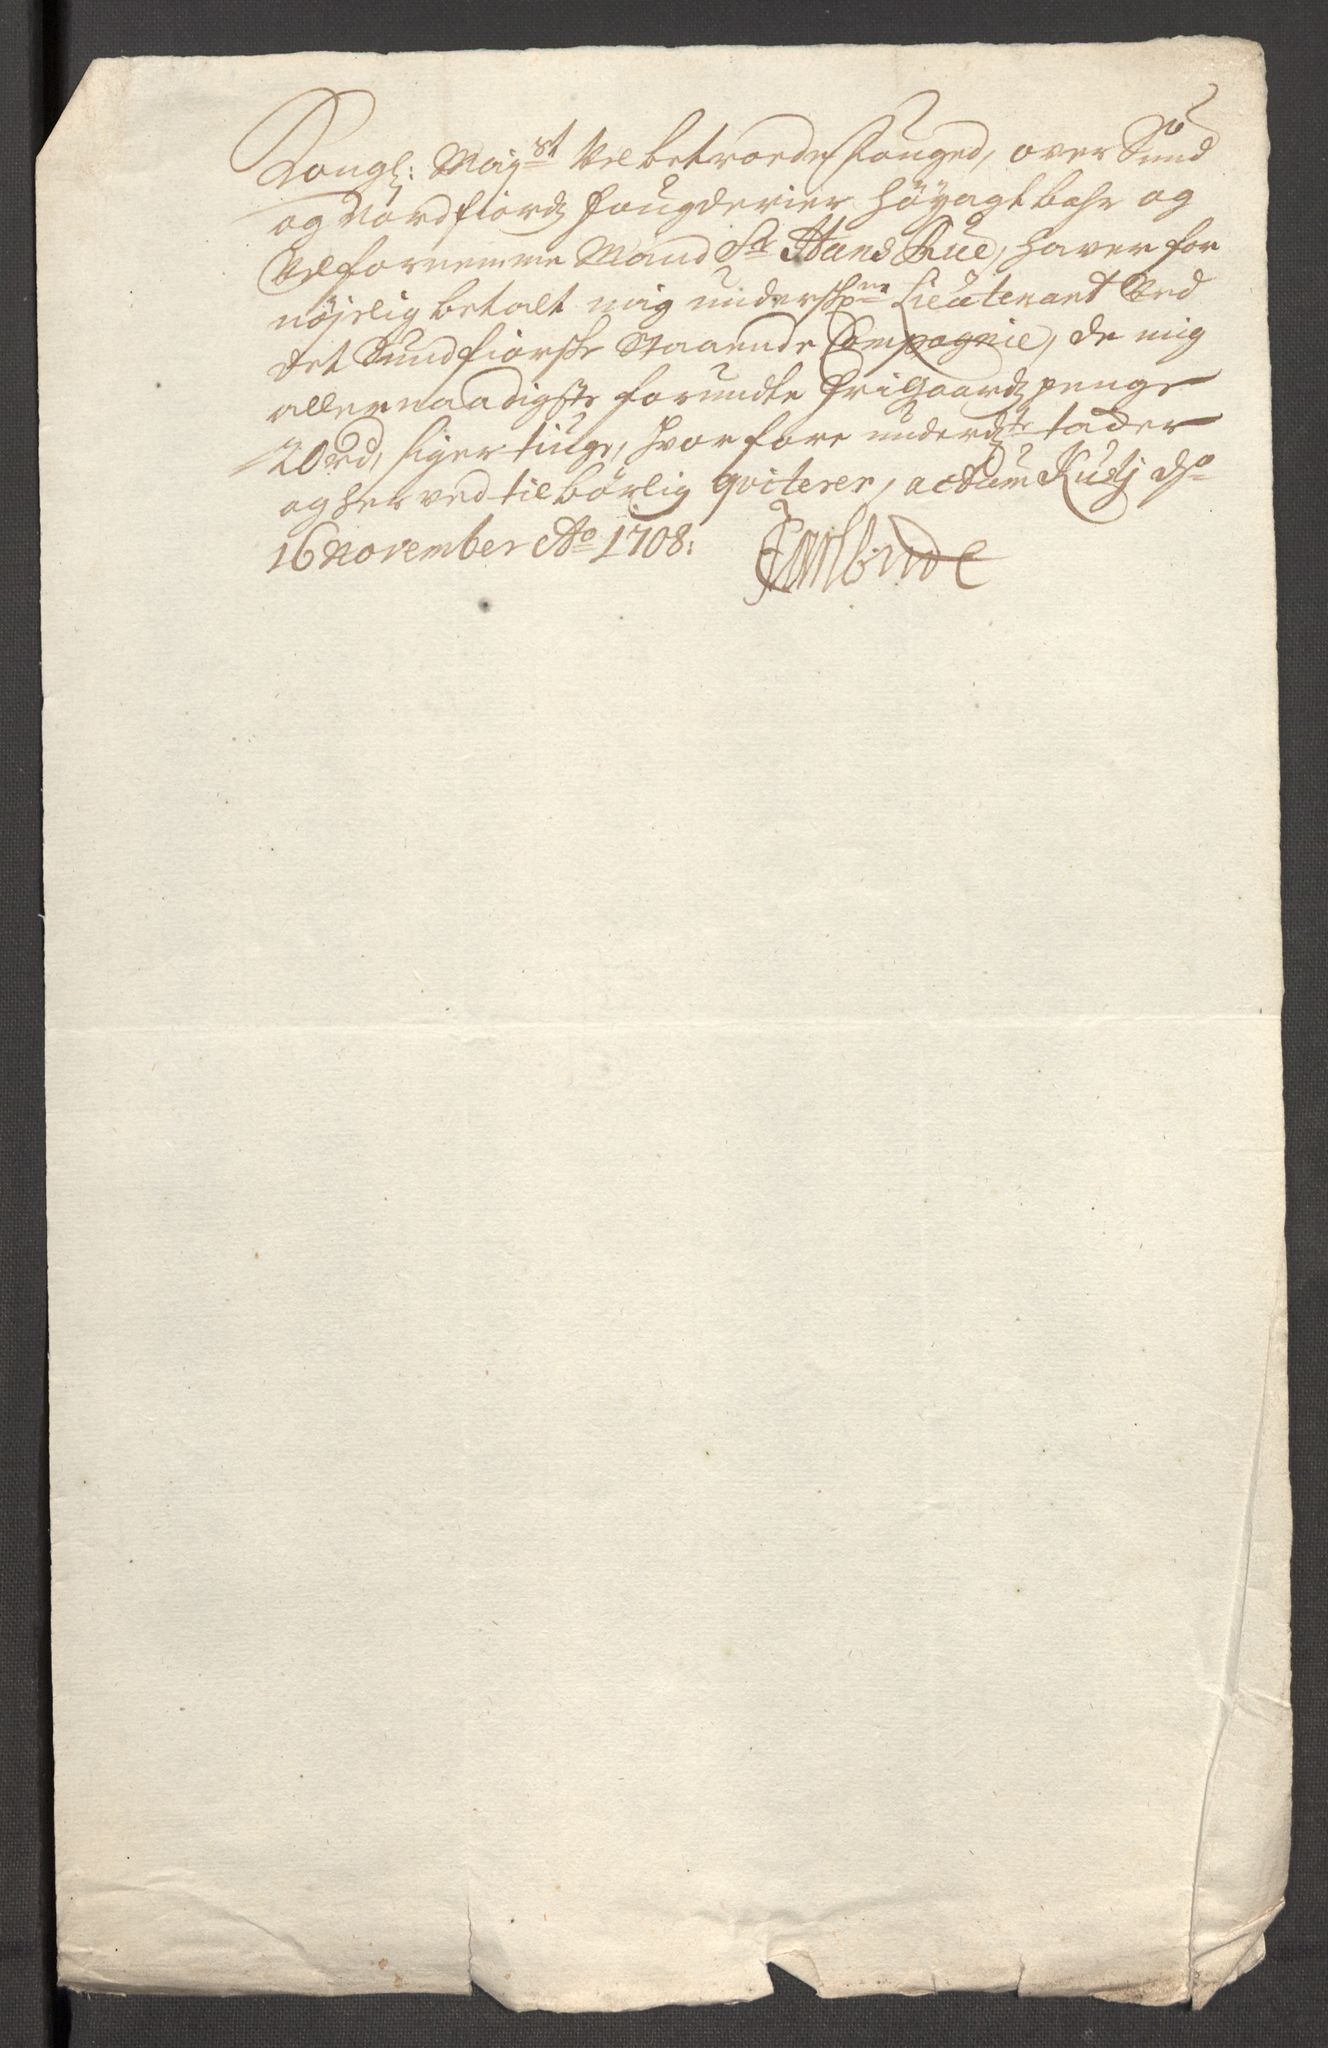 Kongl: Maj.st Velbetroede Fouged, over Sund
og Nordfiordz fougderier Höyagtbahr og
Velfornemme Mand Sr Hans Rue, haver for
nöjelig betalt mig underskr.ne Lieutenant Ved
det Sundfiorske Staaende Compagnie, de mig
allernaadigste forundte friGaardz penge
20 rd, siger tiuge, hvorfore underd.te tacker
og her ved tilbörlig qviterer, actum d.
16 November Ao 1708: